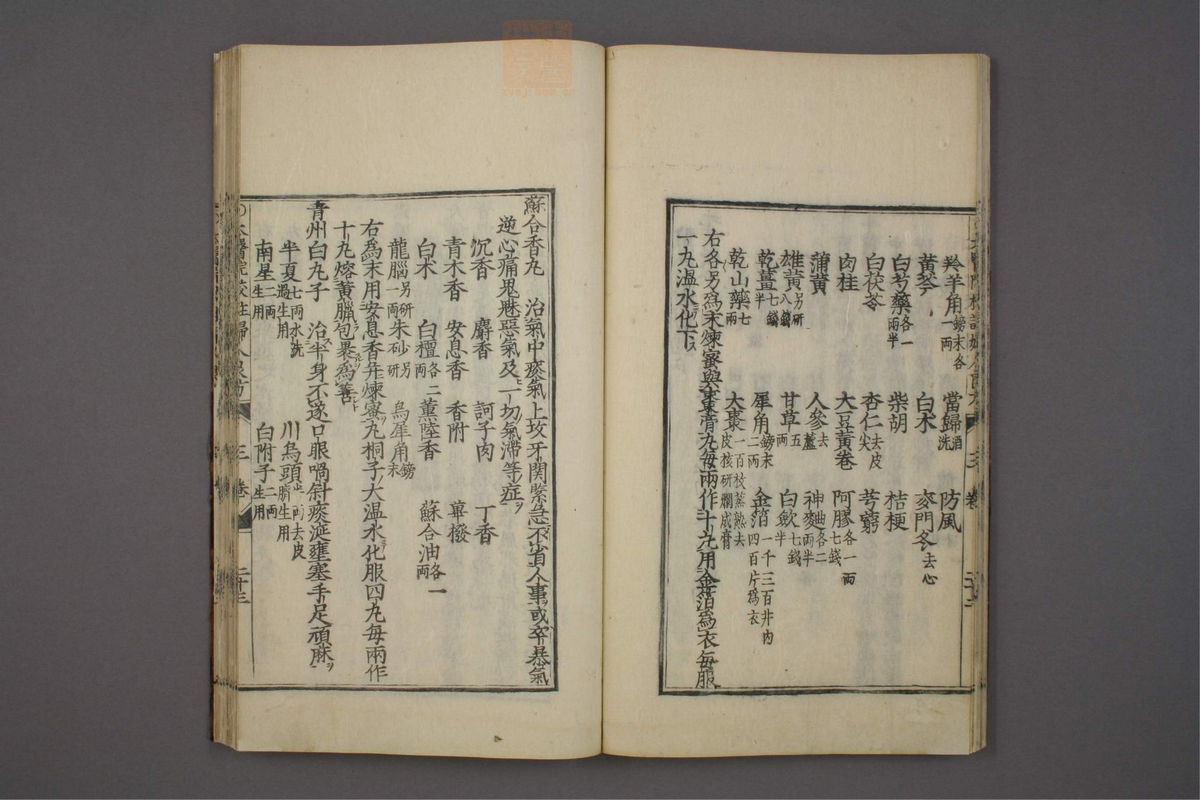 羚羊角鎊末各一兩 當歸酒洗 防風
黃芩 白朮 麥門冬去心
白芍藥各一兩半 柴胡 桔梗
白茯苓 杏仁去皮尖 芎藭
肉桂 大豆黃卷 阿膠各一兩七錢
蒲黃 人參去蘆 神麴各二兩半
雄黃另研八錢 甘草五兩 白斂七錢半
乾薑七錢半 犀角鎊末二兩 金箔一千三百片內四百片爲衣
乾山藥七兩 大棗一百枚蒸熟去皮核研爛成膏
右各另爲末煉蜜與棗膏丸每兩作十丸用金箔爲衣每服
一丸溫水化下
蘇合香丸 治氣中痰氣上攻牙關緊急不省人事或卒暴氣
逆心痛鬼魅惡氣及一切氣滯等症
沉香 麝香 訶子肉 丁香
青木香 安息香 香附 蓽撥
白朮 白檀各二兩 薰陸香 蘇合油各一兩
龍腦另研一兩 朱砂另研 烏犀角鎊末
右爲末用安息香幷煉蜜丸桐子大溫水化服四丸每兩作
十丸熔黃臘包裹爲善
青州白丸子 治半身不遂口眼喎斜痰涎壅塞手足頑麻
半夏七兩水洗過生用 川烏頭去皮臍生用
南星二兩生用 白附子二兩生用
太醫院校註婦人良方 三卷 二十三